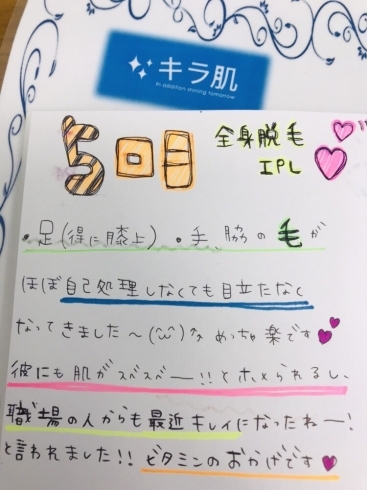 キラ肌
In addition shining tomorrow
5回目
全身脱毛
IPL
・足(得に膝上)・手、脇の毛が
ほぼ自己処理しなくても目立たなく
なってきました〜(ω)ﾉﾉ めっちゃ楽です
彼にも肌がスベスベー!!とホメられるし、
職場の人からも最近キレイになったねー!
と言われました!!ビタミンのおかげです